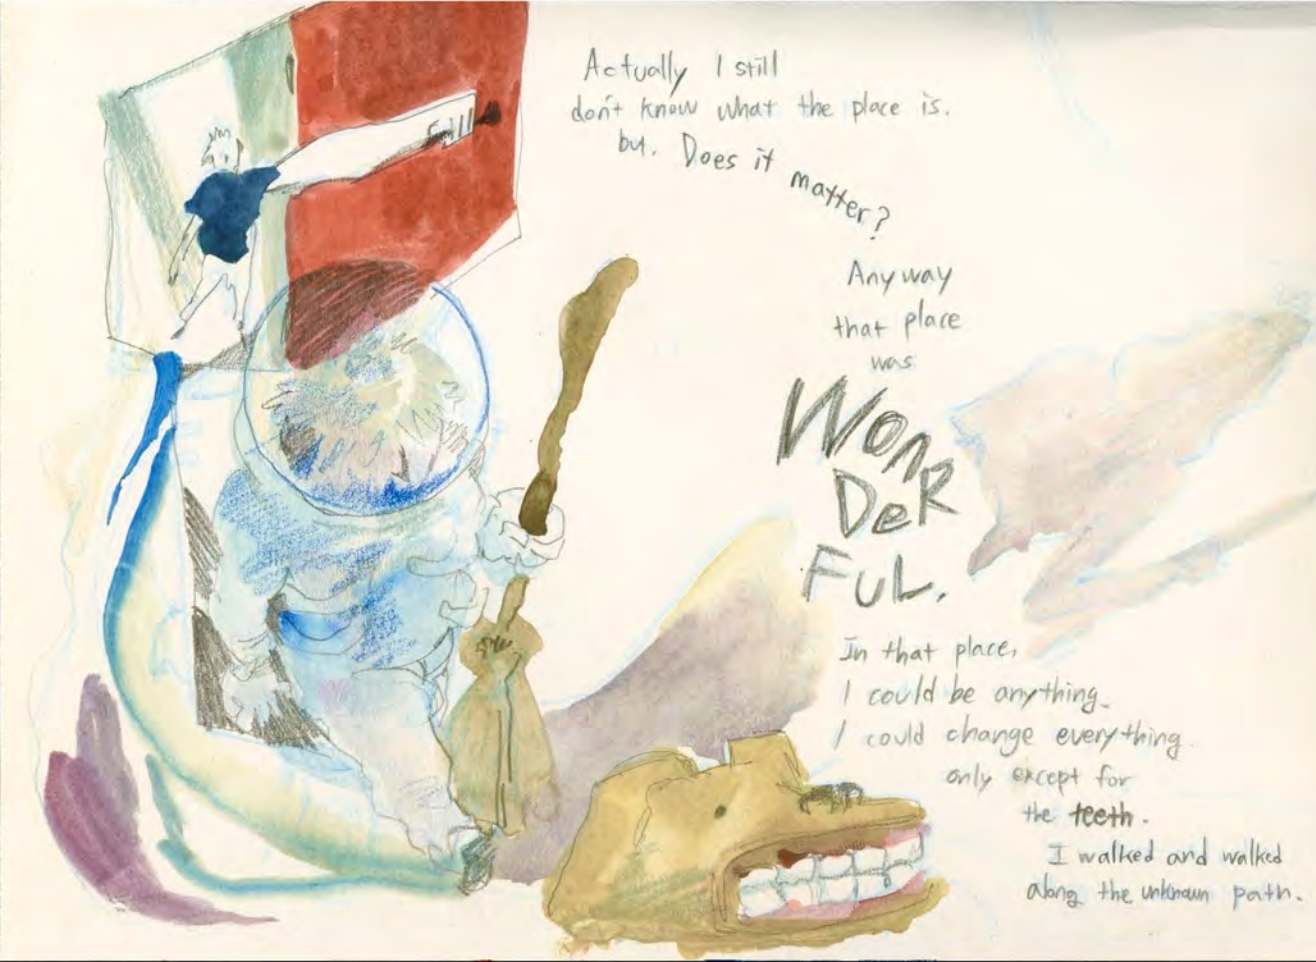 Actually I still
don't know what the place is.
but. Does it matter?
Anyway
that place
was
WON
DeR
FUL.
In that place,
I could be anything.
I could change everything.
only except for
the teeth.
I walked and walked
along the unknown path.